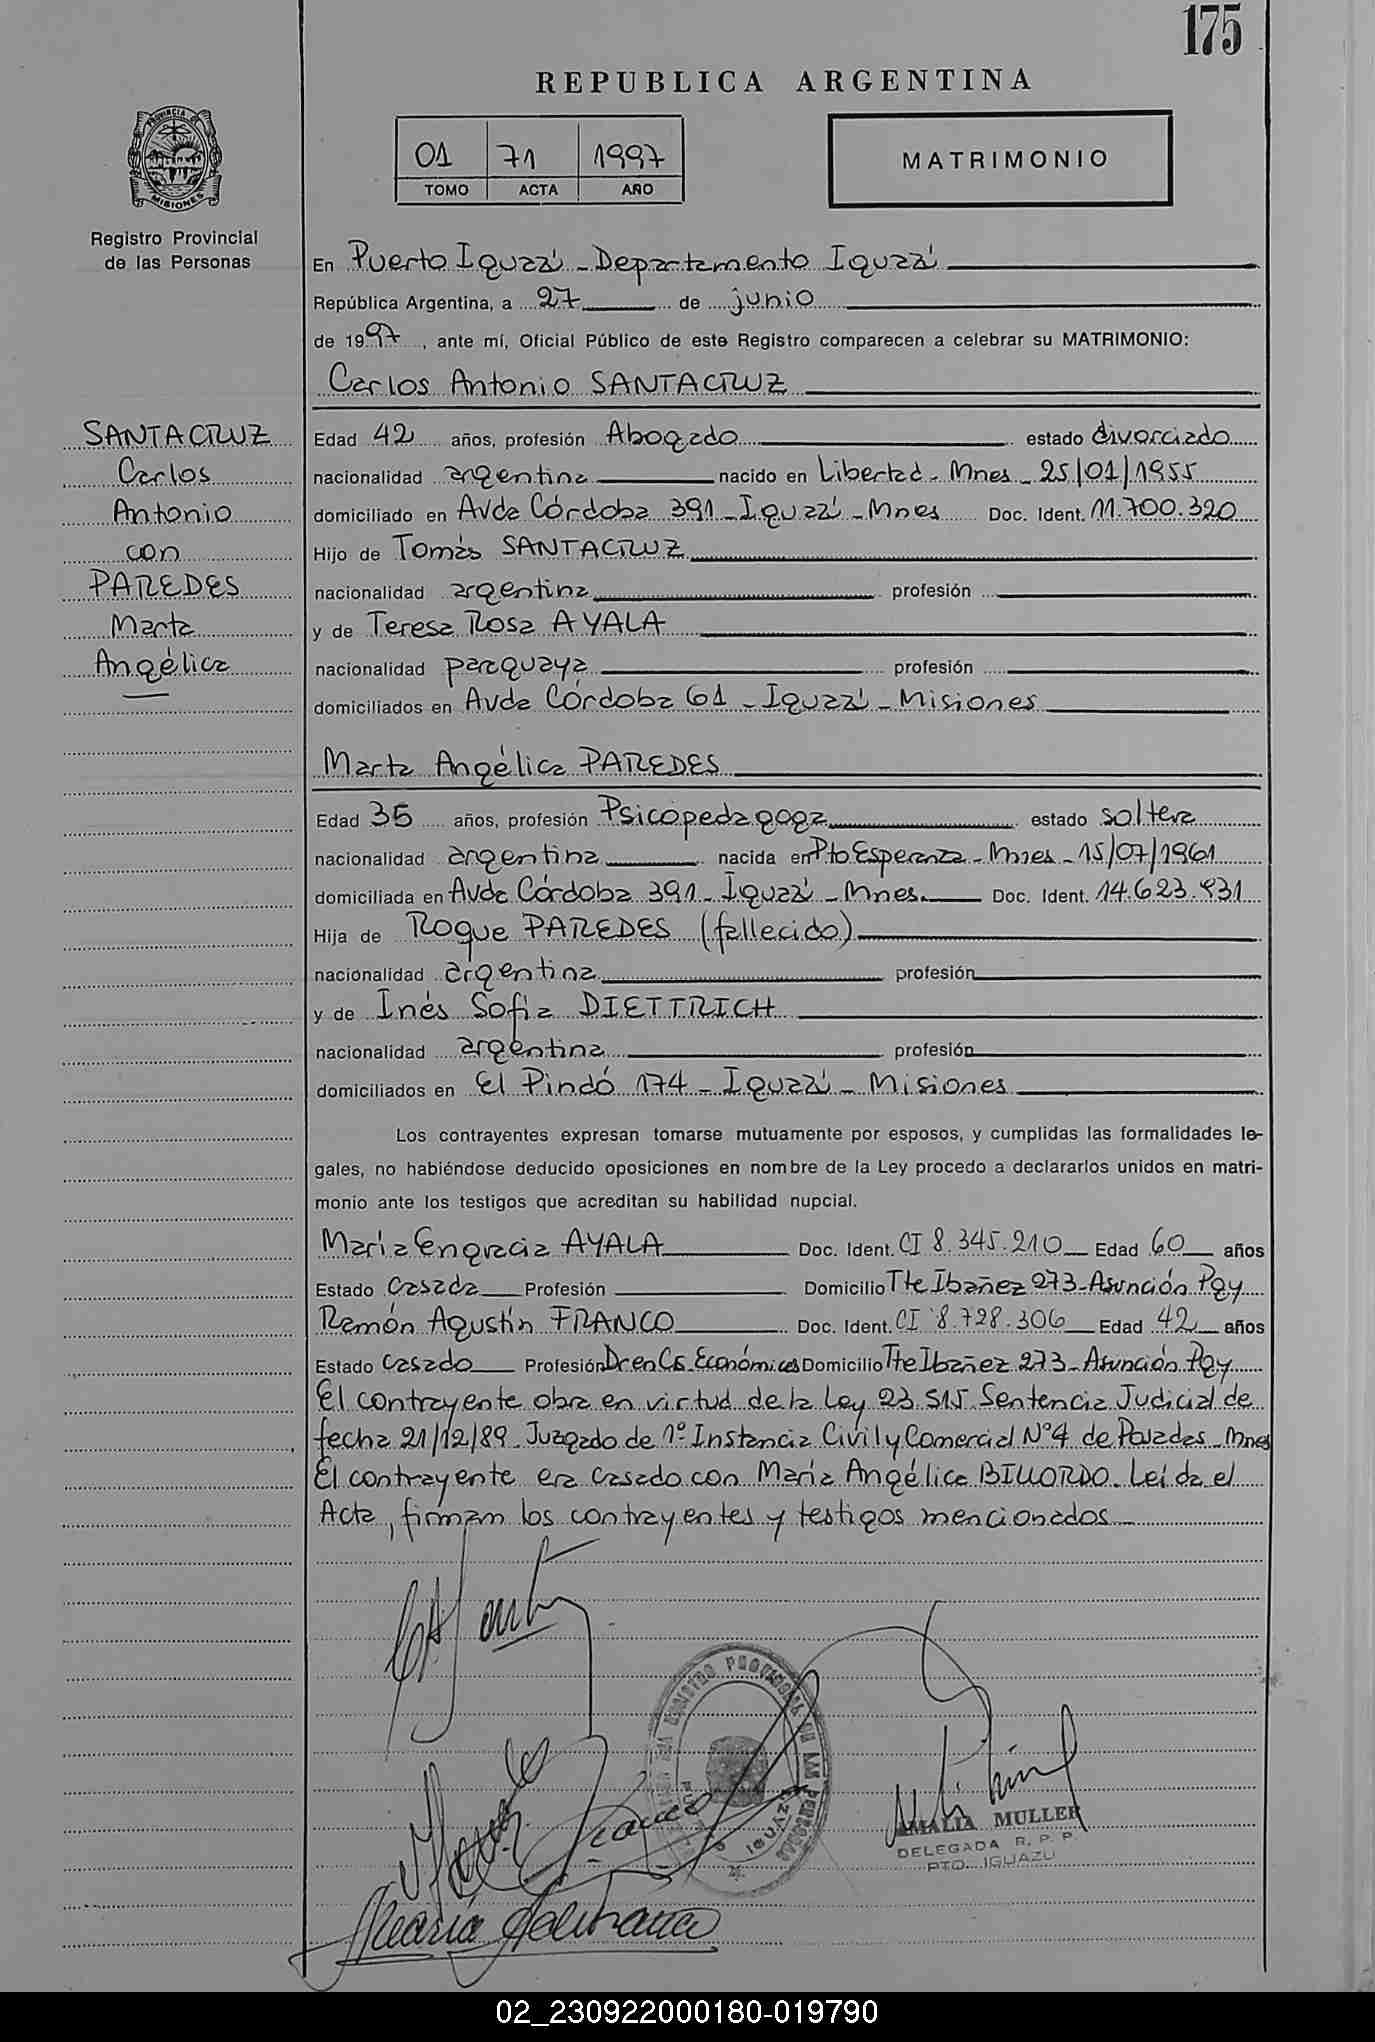 175
REPUBLICA ARGENTINA
PROVINCIA DE
MISIONES
01 71 1997
TOMO ACTA AÑO
MATRIMONIO
Registro Provincial
de las Personas
En Puerto Iguazú - Departamento Iguazú
República Argentina, a 27 de junio
de 1997, ante mí, Oficial Público de este Registro comparecen a celebrar su MATRIMONIO:
Carlos Antonio SANTACRUZ
SANTACRUZ
Carlos
Antonio
con
PAREDES
Marta
Angélica
Edad 42 años, profesión Abogado estado divorciado
nacionalidad argentina nacido en Libertad - Mnes - 25/01/1955
domiciliado en Avda Córdoba 391 - Iguazú - Mnes Doc. Ident. 11.700.320
Hijo de Tomás SANTACRUZ
nacionalidad argentina profesión
y de Teresa Rosa AYALA
nacionalidad paraguaya profesión
domiciliados en Avda Córdoba 61 - Iguazú - Misiones
Marta Angélica PAREDES
Edad 35 años, profesión Psicopedagoga estado soltera
nacionalidad argentina nacida en Pto Esperanza - Mnes - 15/07/1961
domiciliada en Avda Córdoba 391 - Iguazú - Mnes. Doc. Ident. 14.623.931
Hija de Roque PAREDES (fallecido)
nacionalidad argentina profesión
y de Inés Sofia DIETTRICH
nacionalidad argentina profesión
domiciliados en El Pindó 174 - Iguazú - Misiones
Los contrayentes expresan tomarse mutuamente por esposos, y cumplidas las formalidades le-
gales, no habiéndose deducido oposiciones en nombre de la Ley procedo a declararlos unidos en matri-
monio ante los testigos que acreditan su habilidad nupcial.
María Engracia AYALA Doc. Ident. CI 8.345.210 Edad 60 años
Estado casada Profesión Domicilio Tte Ibañez 273 - Asunción Pgy
Ramón Agustín FRANCO Doc. Ident. CI 8.728.306 Edad 42 años
Estado casado Profesión Dr en Cs. Económicas Domicilio Tte Ibañez 273 - Asunción Pgy
El contrayente obra en virtud de la Ley 23.515. Sentencia Judicial de
fecha 21/12/89. Juzgado de 1º Instancia Civil y Comercial Nº4 de Posadas - Mnes
El contrayente era casado con María Angélica BILLORDO. Leída el
Acta, firman los contrayentes y testigos mencionados
REGISTRO PROVINCIAL DE LAS PERSONAS
IGUAZU
AMALIA MULLER
DELEGADA R. P. P.
PTO. IGUAZU
02_230922000180-019790